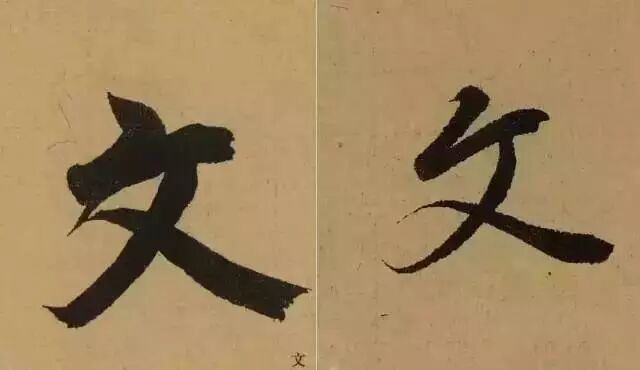 文 文
文